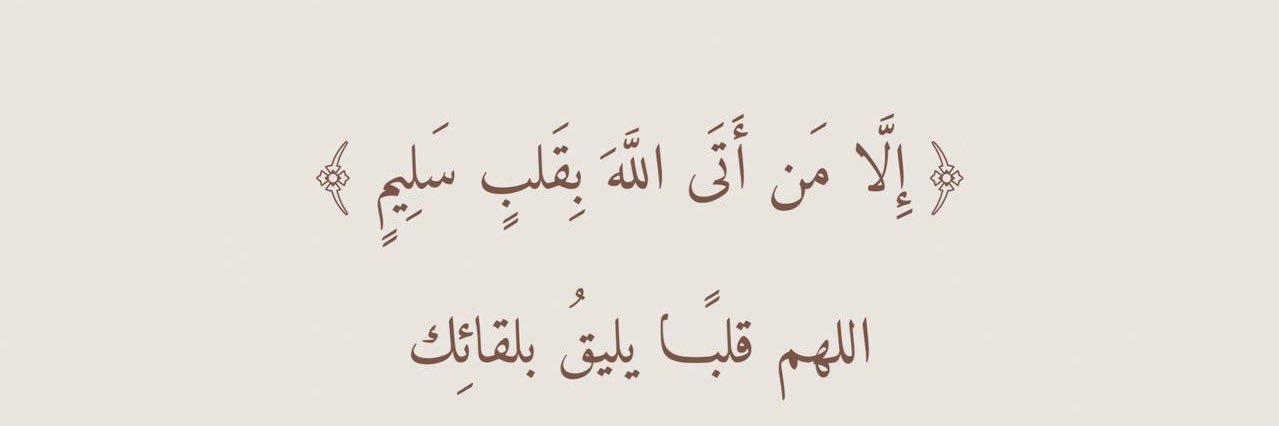 ﴿ إِلَّا مَن أَتَى اللَّهَ بِقَلبٍ سَلِيمٍ ﴾
اللهم قلبـــًا يليقُ بلقائِك